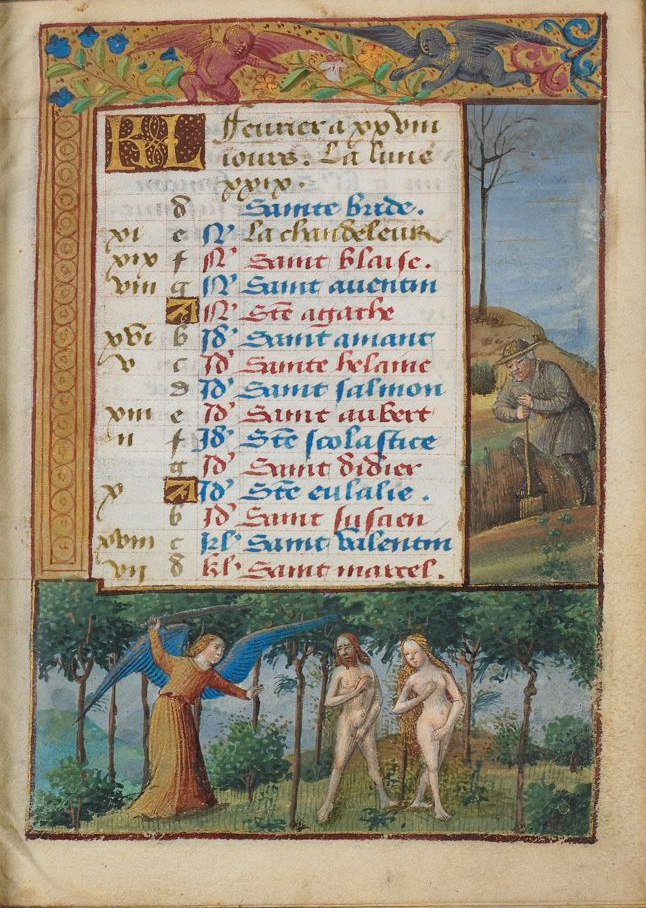 KL ffeurier a xxviii
iours. La lune
xxix.
d Sainte bride.
xi e N La chandeleur
xix f N Saint blaise.
viii g N Saint auentin
A N Ste agathe
xvi b Id Saint amant
v c Id Sainte helaine
d Id Saint salmon
xiii e Id Saint aubert
ii f Id Ste scolastice
g Id Saint didier
x A Id Ste eulalie.
b Id Saint
xviii c kl Saint valentin
vii d kl Saint marcel.